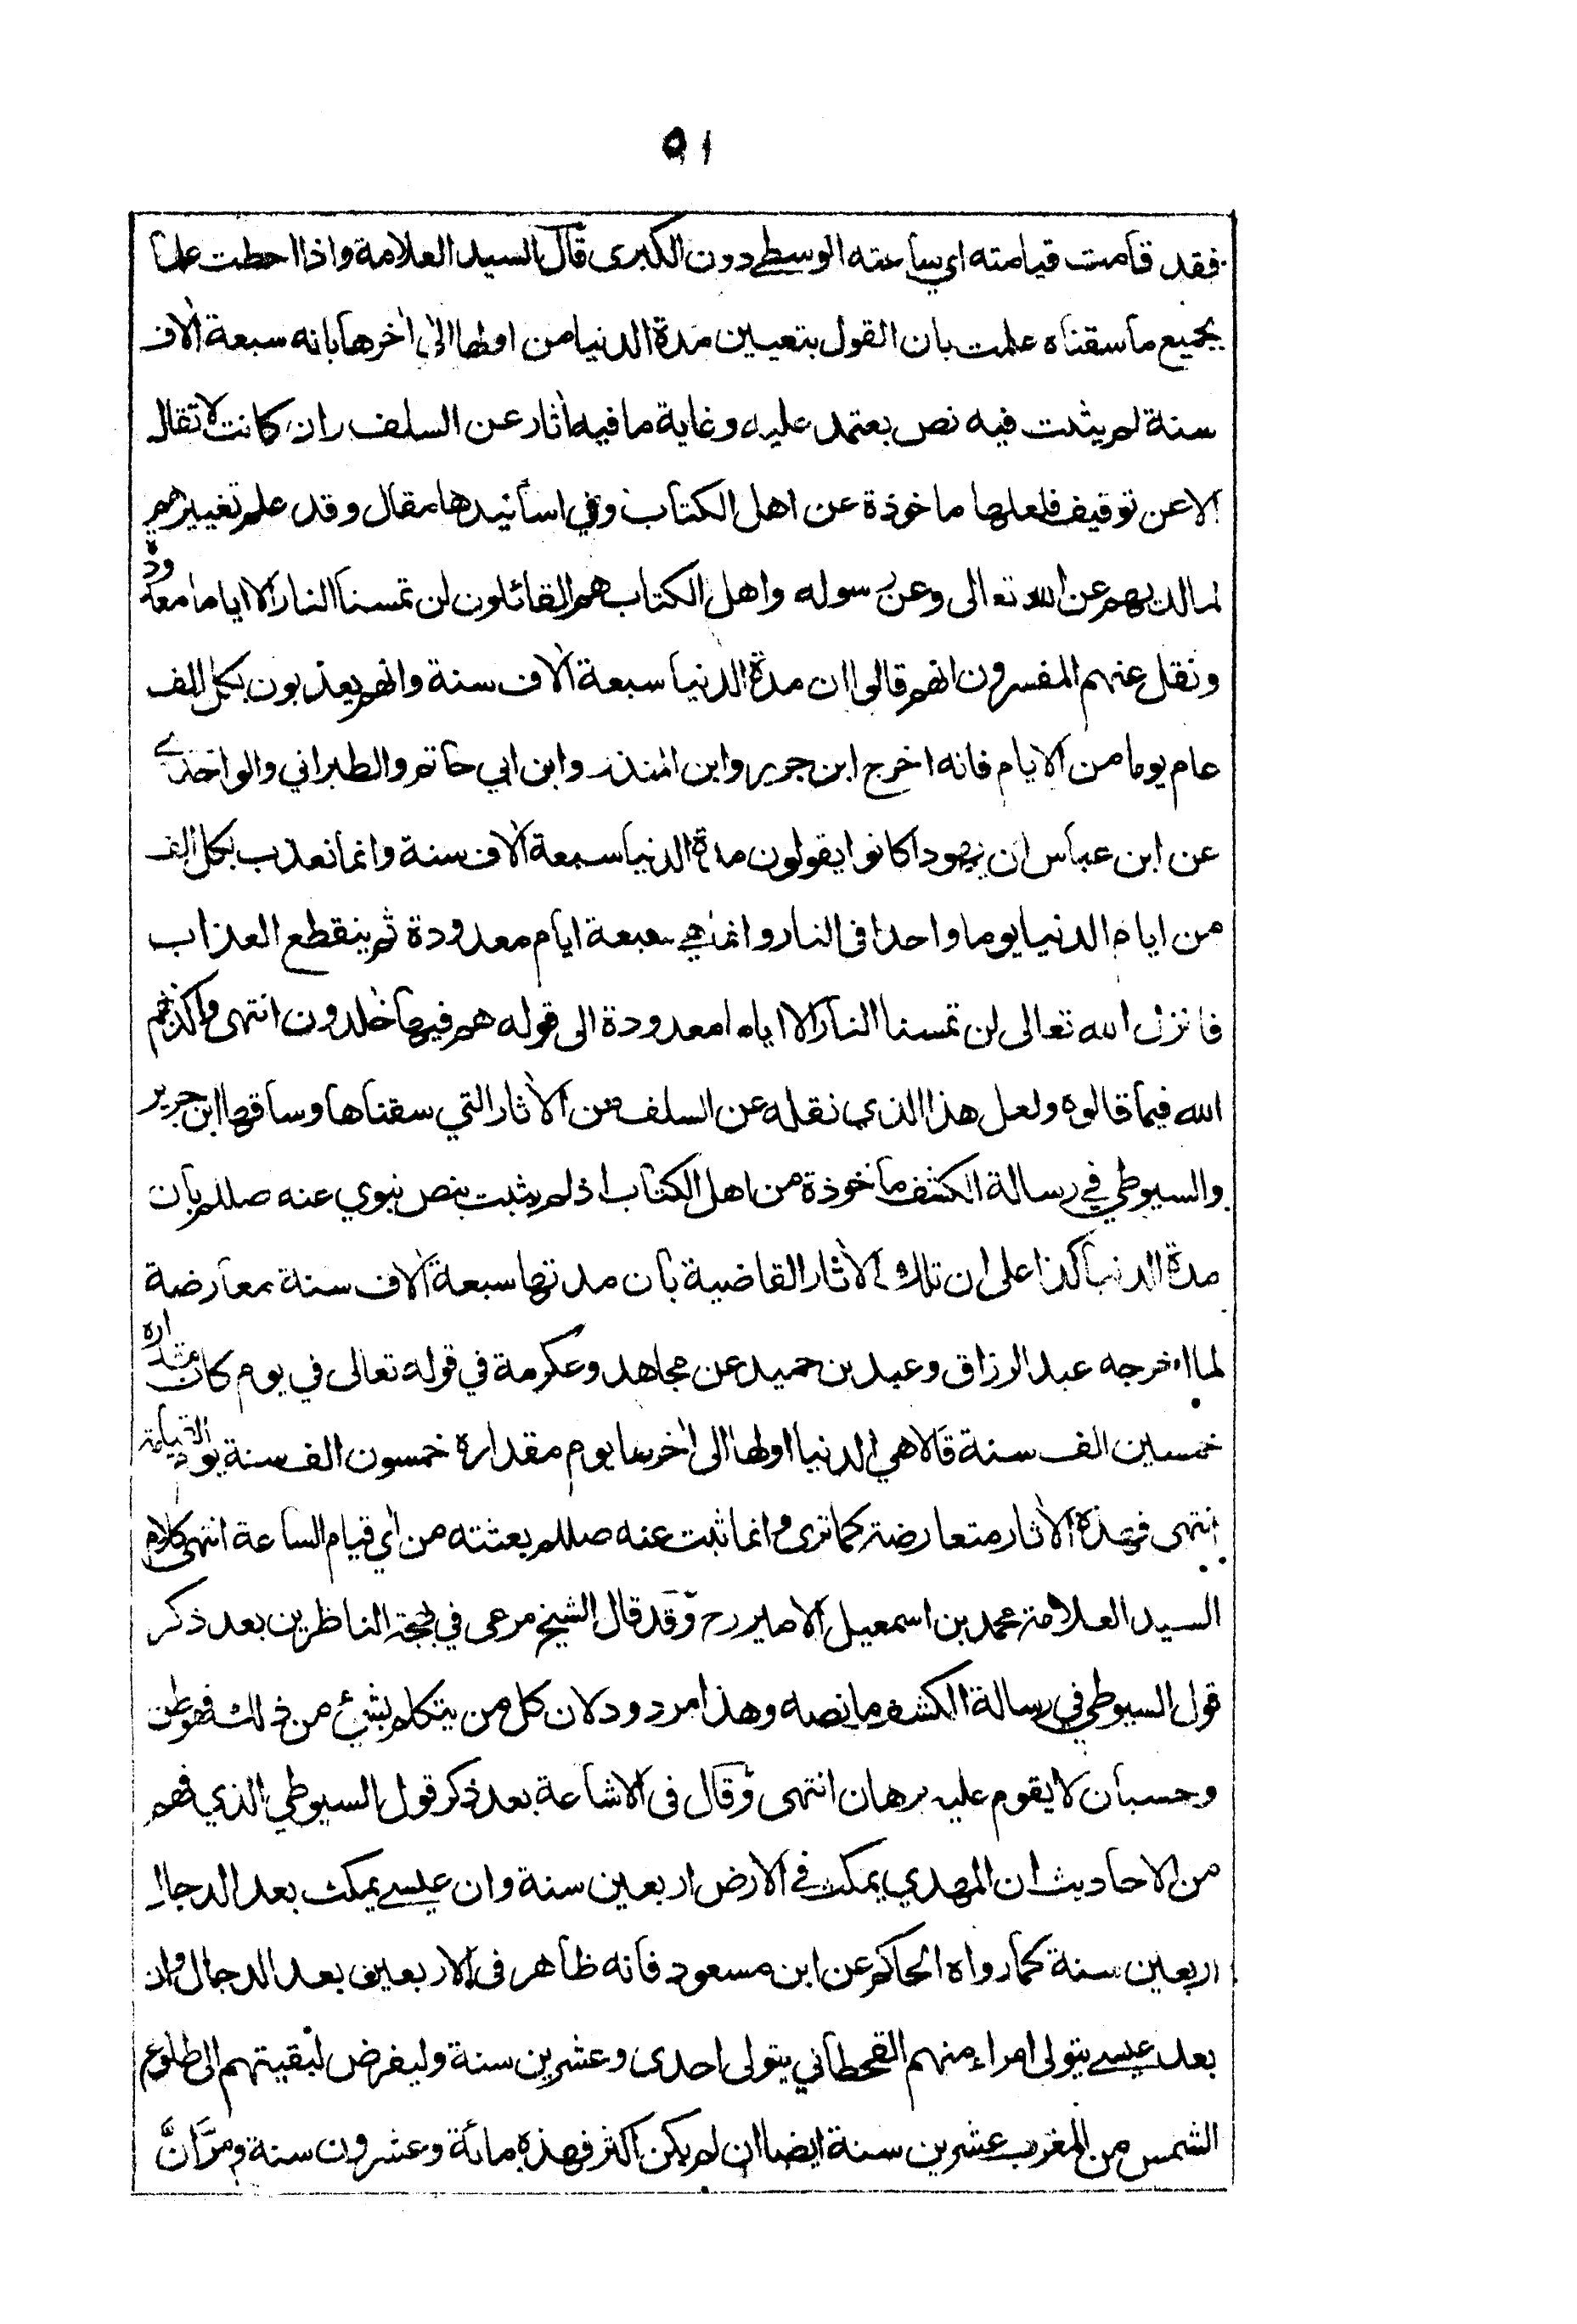 ٩١
فقد قامت قيامته اي ساعته الوسطى دون الكبرى قال السيد العلامة واذا احطت علما
بجميع ما سقناه علمت بان القول بتعيين مدة الدنيا من اولها الى اٰخرها بانه سبعة اٰلاف
سنة لم يثبت فيه نص يعتمد عليه وغاية ما فيه اٰثار عن السلف وان كانت لا تقال
الا عن توقيف فلعلها ماخوذة عن اهل الكتاب وفي اسانيدها مقال وقد علم تغييرهم
لما لديهم عن الله تعالى وعن رسوله واهل الكتاب هم القائلون لن تمسنا النار الا اياما معدودة
ونقل عنهم المفسرون انهم قالوا ان مدة الدنيا سبعة اٰلاف سنة وانهم يعذبون بكل الف
عام يوما من الايام فانه اخرج ابن جرير وابن المنذر وابن ابي حاتم والطبراني والواحدي
عن ابن عباس ان يهودا كانوا يقولون مدة الدنيا سبعة اٰلاف سنة وانما نعذب بكل الف
من ايام الدنيا يوما واحدا فى النار وانما هي سبعة ايام معدودة ثم ينقطع العذاب
فانزل الله تعالى لن تمسنا النار الا اياما معدودة الى قوله هم فيها خٰلدون انتهى واكذبهم
الله فيما قالوه ولعل هذا الذي نقله عن السلف من الاٰثار التي سقناها وساقها ابن جرير
والسيوطي في رسالة الكشف ماخوذة من اهل الكتاب اذ لم يثبت بنص نبوي عنه صللم بان
مدة الدنيا كذا على ان تلك الاٰثار القاضية بان مدتها سبعة اٰلاف سنة معارضة
لما اخرجه عبد الرزاق وعبد بن حميد عن مجاهد وعكرمة في قوله تعالى في يوم كان مقداره
خمسين الف سنة قالا هي الدنيا اولها الى اٰخرها يوم مقداره خمسون الف سنة يوم القيامة
انتهى فهذه الاٰثار متعارضة كما ترى وانما ثبت عنه صللم بعثته من اي قيام الساعة انتهى كلام
السيد العلامة محمد بن اسمعيل الامير رح وقد قال الشيخ مرعي في بهجة الناظرين بعد ذكر
قول السيوطي في رسالة الكشف ما نصه وهذا مردود لان كل من يتكلم بشئ من ذلك فهو ظن
وحسبان لا يقوم عليه برهان انتهى وقال فى الاشاعة بعد ذكر قول السيوطي الذي فهم
من الاحاديث ان المهدي يمكث في الارض اربعين سنة وان عيسے يمكث بعد الدجال
اربعين سنة كما رواه الحاكم عن ابن مسعود فانه ظاهر فى الاربعين بعد الدجال وان
بعد عيسے يتولى امراء منهم القحطاني يتولى احدى وعشرين سنة وليفرض لبقيتهم الى طلوع
الشمس من المغرب عشرين سنة ايضا ان لم يكن اكثر فهذه مائة وعشرون سنة ومرَّ انَّ